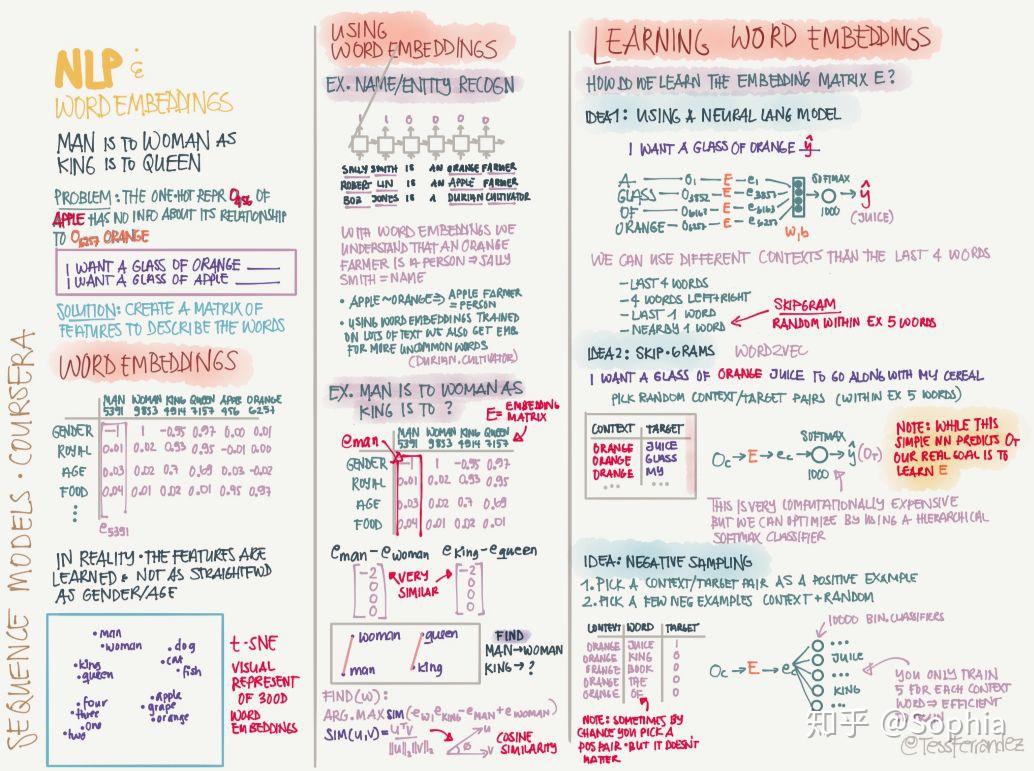 SEQUENCE MODELS · COURSERA
NLP &
WORD EMBEDDINGS
MAN IS TO WOMAN AS
KING IS TO QUEEN
PROBLEM · THE ONE-HOT REPR O456 OF
APPLE HAS NO INFO ABOUT ITS RELATIONSHIP
TO O6257 ORANGE
I WANT A GLASS OF ORANGE ____
I WANT A GLASS OF APPLE ____
SOLUTION: CREATE A MATRIX OF
FEATURES TO DESCRIBE THE WORDS
WORD EMBEDDINGS
MAN WOMAN KING QUEEN APPLE ORANGE
5391 9853 4914 7157 456 6257
GENDER -1 1 -0.95 0.97 0.00 0.01
ROYAL 0.01 0.02 0.93 0.95 -0.01 0.00
AGE 0.03 0.02 0.7 0.69 0.03 -0.02
FOOD 0.04 0.01 0.02 0.01 0.95 0.97
e5391
IN REALITY · THE FEATURES ARE
LEARNED & NOT AS STRAIGHTFWD
AS GENDER/AGE
man
woman
dog
king
cat
queen
fish
four
apple
three
grape
one
orange
two
t-SNE
VISUAL
REPRESENT
OF 300D
WORD
EMBEDDINGS
USING
WORD EMBEDDINGS
EX. NAME/ENTITY RECOGN
1 1 0 0 0 0
SALLY SMITH IS AN ORANGE FARMER
ROBERT LIN IS AN APPLE FARMER
BOB JONES IS A DURIAN CULTIVATOR
WITH WORD EMBEDDINGS WE
UNDERSTAND THAT AN ORANGE
FARMER IS A PERSON ⇒ SALLY
SMITH = NAME
• APPLE ~ ORANGE ⇒ APPLE FARMER
= PERSON
• USING WORD EMBEDDINGS TRAINED
ON LOTS OF TEXT WE ALSO GET EMB.
FOR MORE UNCOMMON WORDS
(DURIAN, CULTIVATOR)
EX. MAN IS TO WOMAN AS
KING IS TO ?
E = EMBEDDING
MATRIX
eman
MAN WOMAN KING QUEEN
5391 9853 4914 7157
GENDER -1 1 -0.95 0.97
ROYAL 0.01 0.02 0.93 0.95
AGE 0.03 0.02 0.7 0.69
FOOD 0.04 0.01 0.02 0.01
eman - ewoman eking - equeen
-2 -2
0 0
0 0
0 0
VERY
SIMILAR
woman queen
man king
FIND
MAN → WOMAN
KING → ?
FIND(W):
ARG.MAX SIM(ew, eKING - eMAN + eWOMAN)
SIM(U,V) = UTV
||U||2||V||2
u
v
Ø
COSINE
SIMILARITY
LEARNING WORD EMBEDDINGS
HOW DO WE LEARN THE EMBEDDING MATRIX E?
IDEA 1: USING A NEURAL LANG MODEL
I WANT A GLASS OF ORANGE ŷ
A O1 E e1
GLASS O3852 E e3852
OF O6163 E e6163
ORANGE O6257 E e6257
W,b
SOFTMAX
1000
ŷ
(JUICE)
WE CAN USE DIFFERENT CONTEXTS THAN THE LAST 4 WORDS
- LAST 4 WORDS
- 4 WORDS LEFT+RIGHT
- LAST 1 WORD
- NEARBY 1 WORD
SKIPGRAM
RANDOM WITHIN EX 5 WORDS
IDEA 2: SKIP-GRAMS WORD2VEC
I WANT A GLASS OF ORANGE JUICE TO GO ALONG WITH MY CEREAL
PICK RANDOM CONTEXT/TARGET PAIRS (WITHIN EX 5 WORDS)
CONTEXT TARGET
ORANGE JUICE
ORANGE GLASS
ORANGE MY
... ...
Oc → E → ec → ŷ (OT)
SOFTMAX
1000
NOTE: WHILE THIS
SIMPLE NN PREDICTS OT
OUR REAL GOAL IS TO
LEARN E
THIS IS VERY COMPUTATIONALLY EXPENSIVE
BUT WE CAN OPTIMIZE BY USING A HIERARCHICAL
SOFTMAX CLASSIFIER
IDEA: NEGATIVE SAMPLING
1. PICK A CONTEXT/TARGET PAIR AS A POSITIVE EXAMPLE
2. PICK A FEW NEG EXAMPLES CONTEXT + RANDOM
CONTEXT WORD TARGET
ORANGE JUICE 1
ORANGE KING 0
ORANGE BOOK 0
ORANGE THE 0
ORANGE OF 0
NOTE: SOMETIMES BY
CHANCE YOU PICK A
POS PAIR · BUT IT DOESN'T
MATTER
Oc → E → ec
10000 BIN. CLASSIFIERS
...
JUICE
...
KING
...
YOU ONLY TRAIN
5 FOR EACH CONTEXT
WORD ⇒ EFFICIENT
知乎 @Sophia
@TessFerrandez